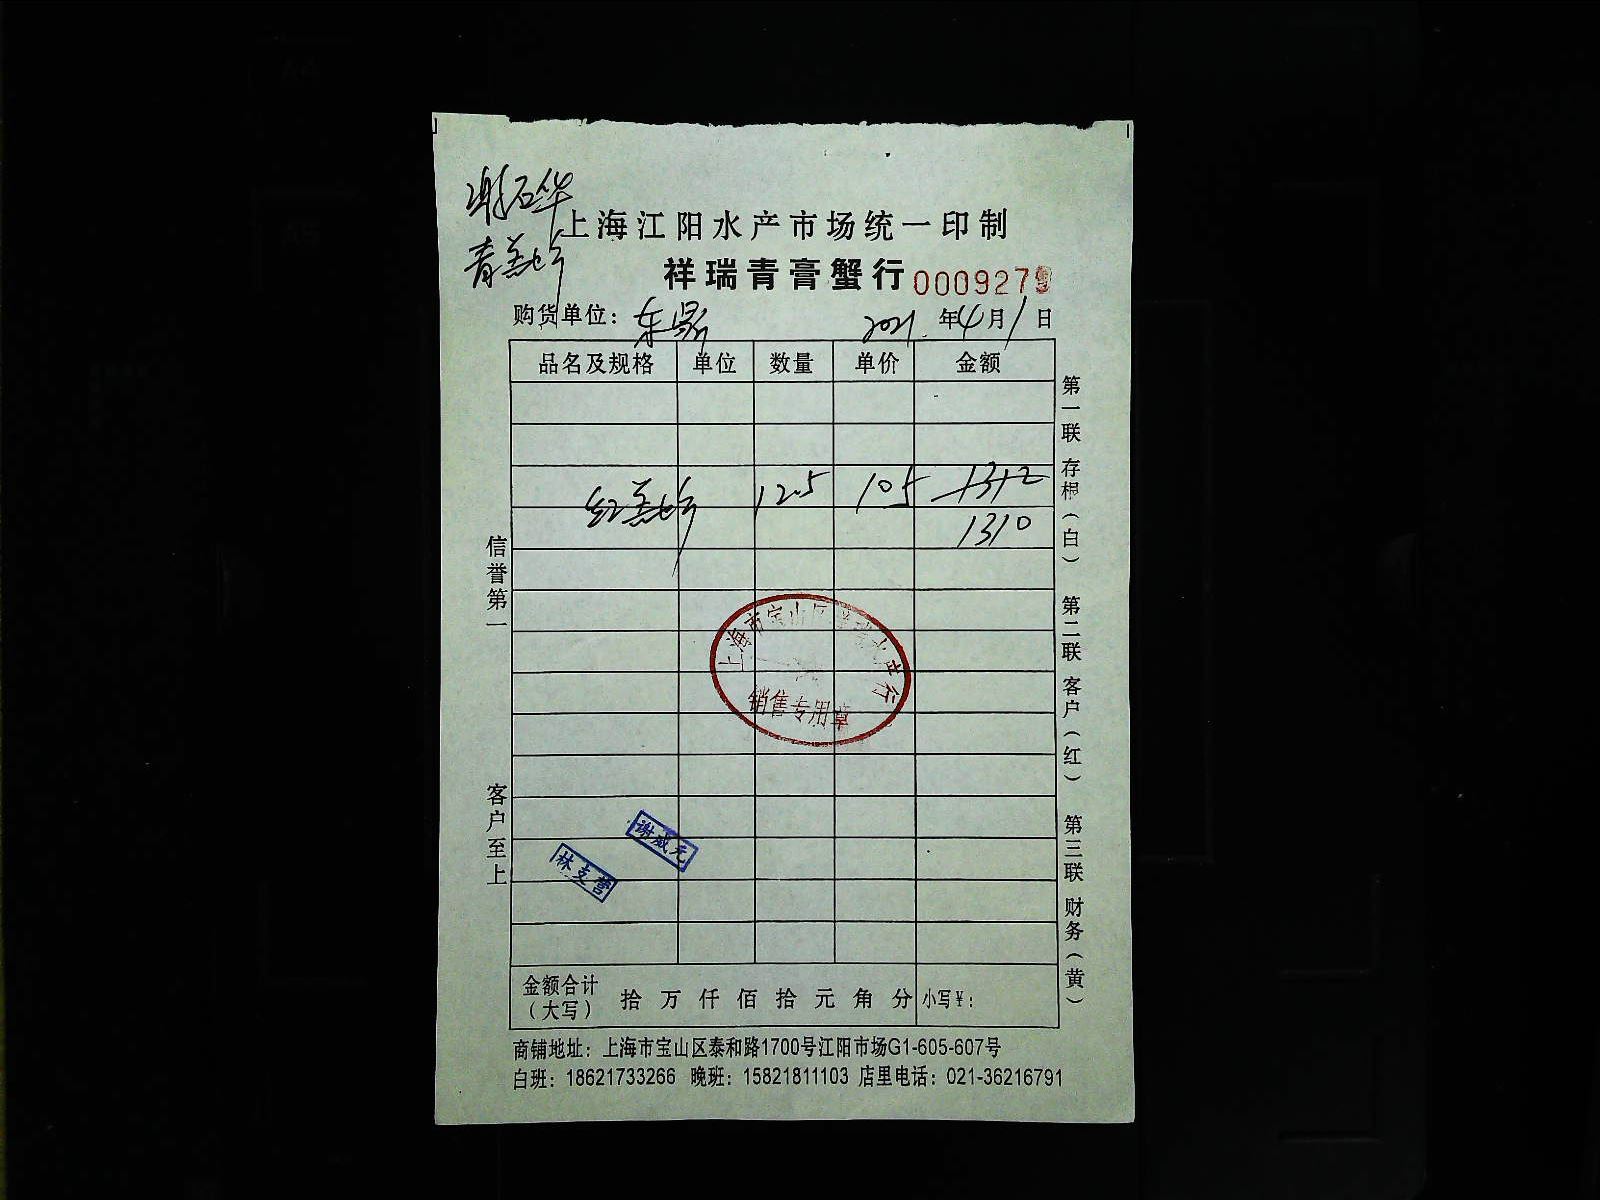 上海江阳水产市场统一印制
祥瑞青膏蟹行 0009279
购货单位：东鼎 2021年4月1日
品名及规格 单位 数量 单价 金额
红羔 12.5 105 1312
1310
上海市宝山区祥瑞水产行
销售专用章
谢威元
林支营
金额合计
（大写） 拾 万 仟 佰 拾 元 角 分 小写¥：
商铺地址：上海市宝山区泰和路1700号江阳市场G1-605-607号
白班：18621733266 晚班：15821811103 店里电话：021-36216791
信誉第一
客户至上
第一联 存根（白） 第二联 客户（红） 第三联 财务（黄）